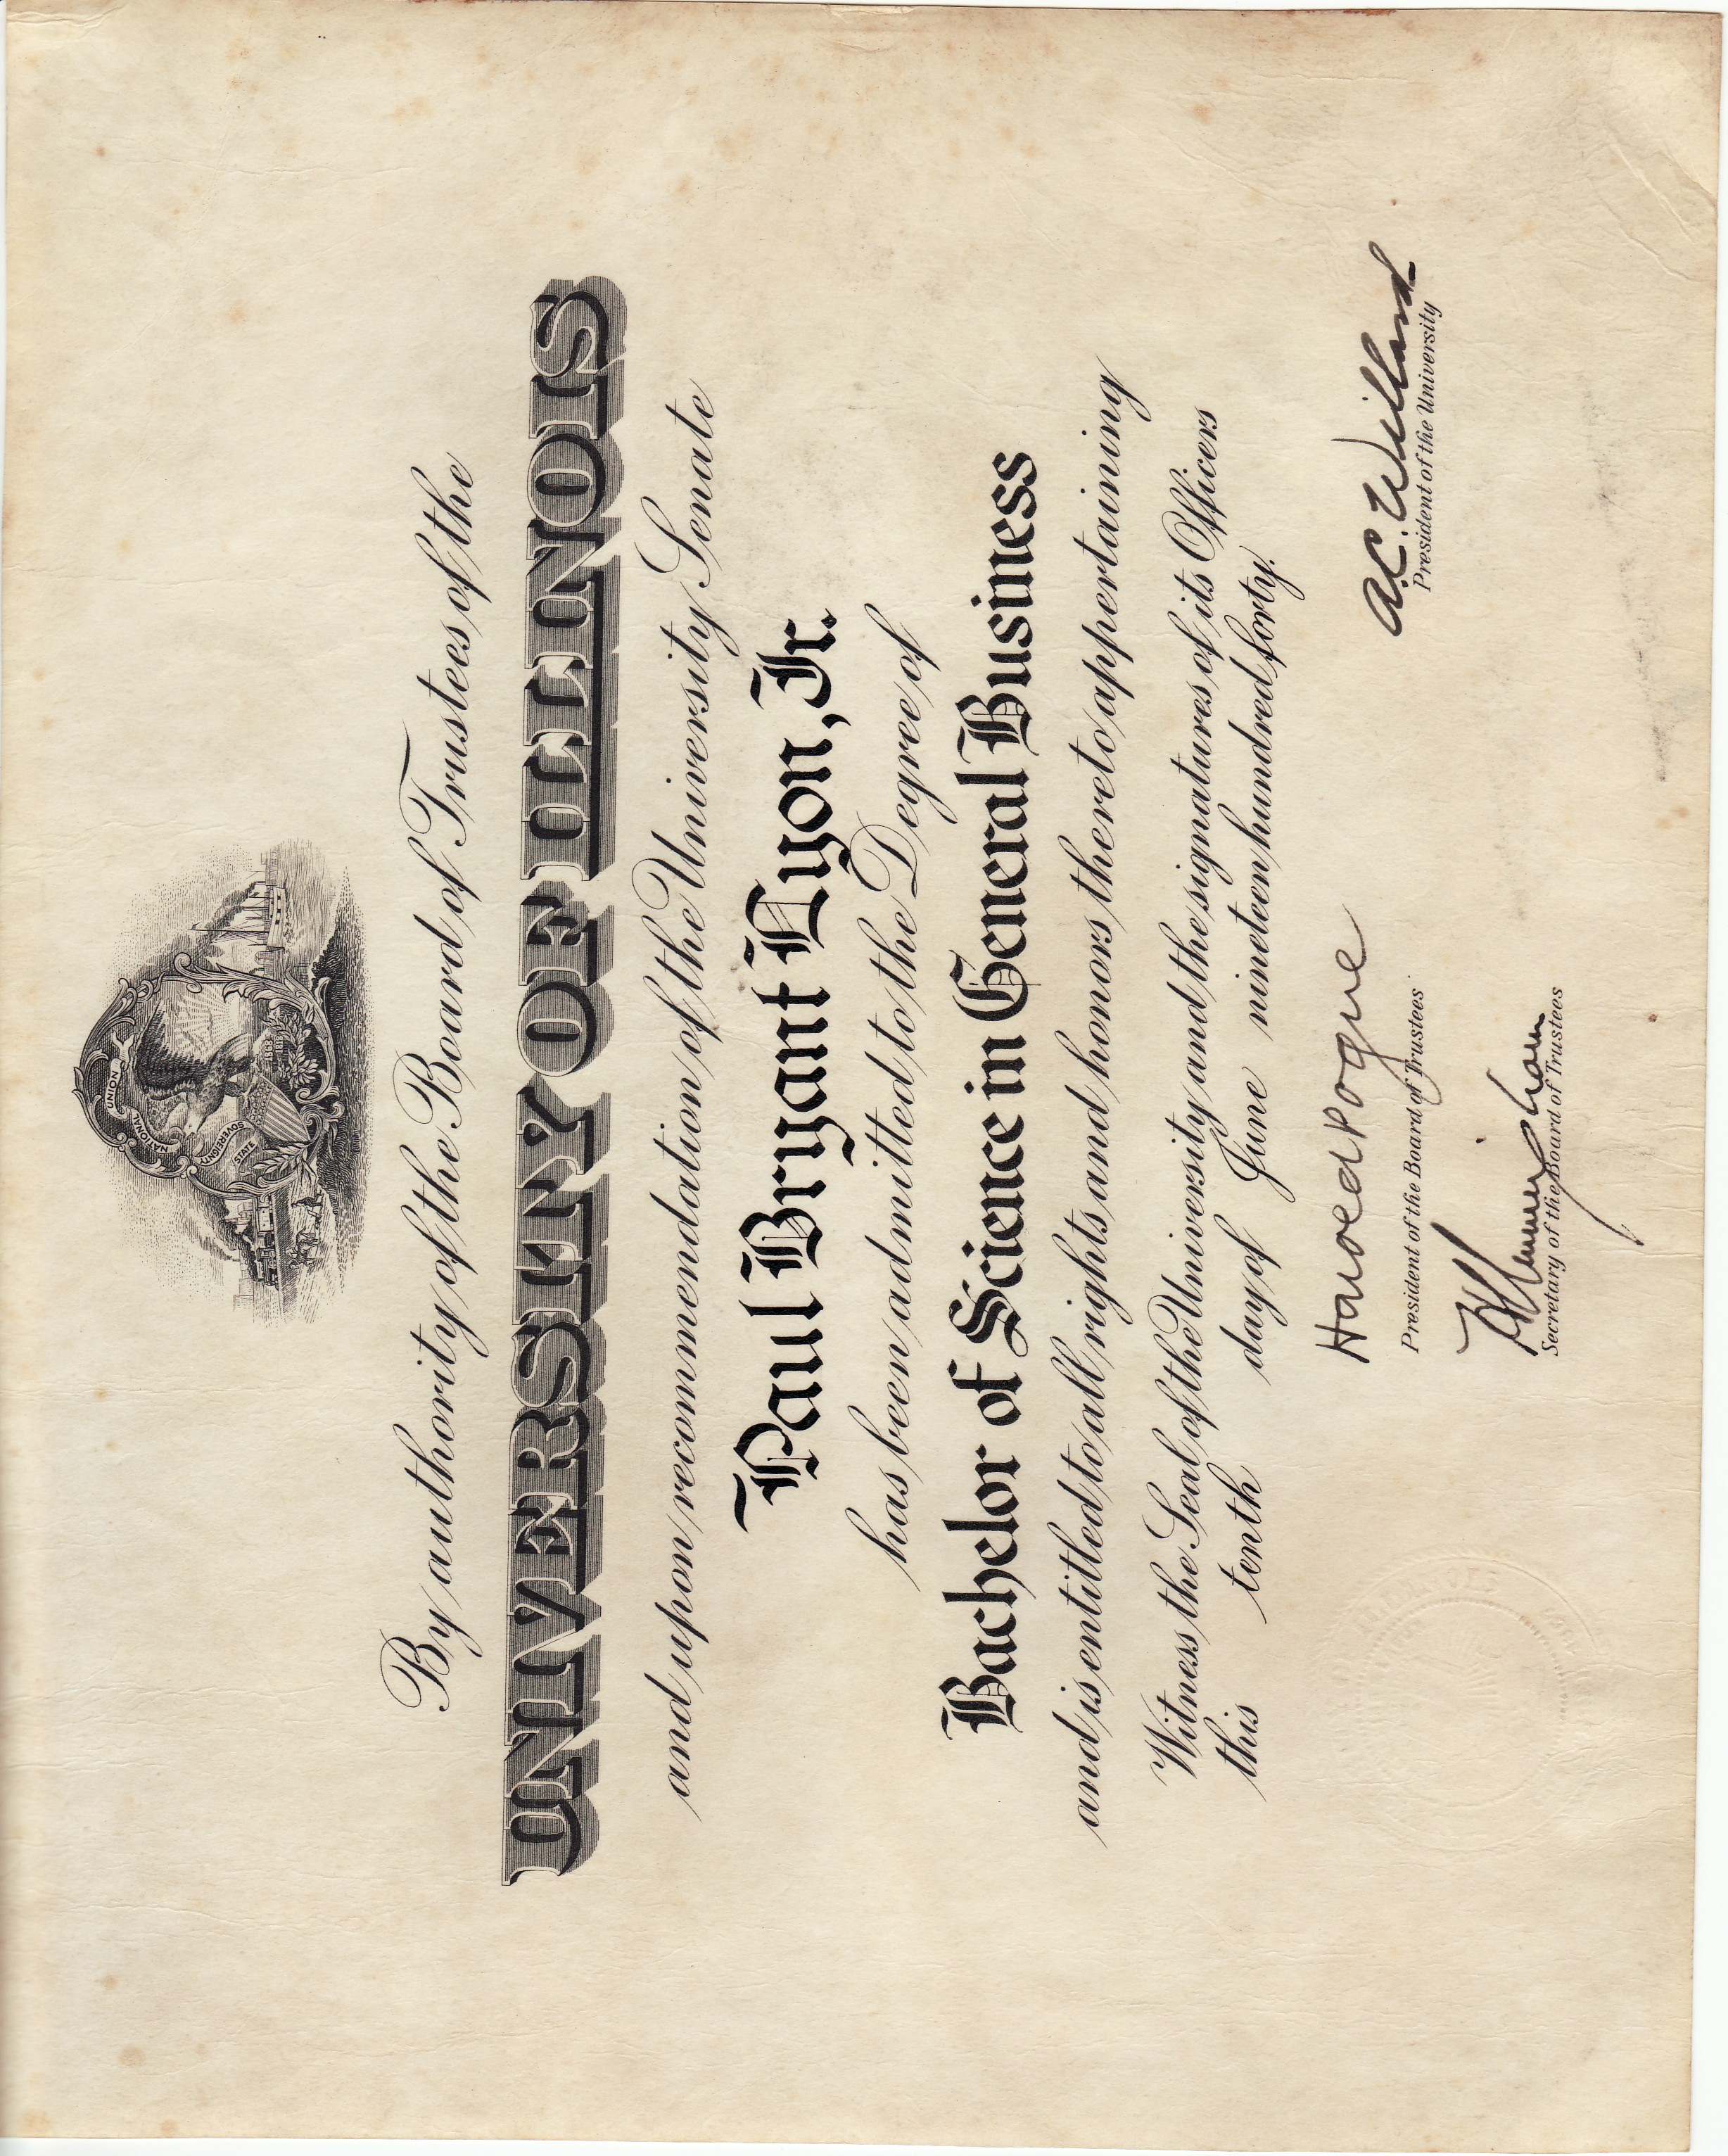 STATE SOVEREIGNTY
NATIONAL UNION
1868
1818
By authority of the Board of Trustees of the
UNIVERSITY OF ILLINOIS
and upon recommendation of the University Senate
Paul Bryant Nyon, Jr.
has been admitted to the Degree of
Bachelor of Science in General Business
and is entitled to all rights and honors thereto appertaining
Witness the Seal of the University and the signatures of its Officers
this tenth day of June nineteen hundred forty.
Harold Pogue
President of the Board of Trustees
Cunningham
Secretary of the Board of Trustees
A.C. Willard
President of the University